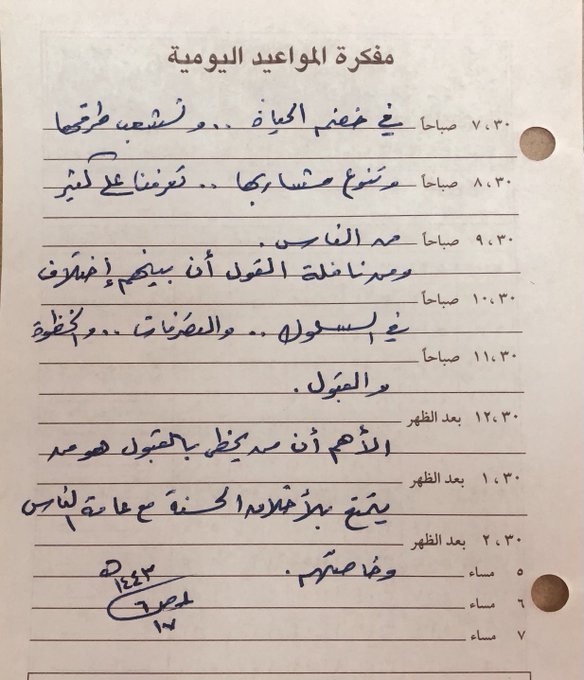 مفكرة المواعيد اليومية
٧،٣٠ صباحاً في خضم الحياة .. وتشعب طرقها
٨،٣٠ صباحاً وتنوع مشاربها .. تعرفنا على كثير
٩،٣٠ صباحاً من الناس .
ومن نافلة القول أن بينهم إختلاف
١٠،٣٠ صباحاً
في السلوك .. والتصرفات .. والحظوة
١١،٣٠ صباحاً
والقبول .
١٢،٣٠ بعد الظهر
الأهم أن من يحظى بالقبول هو من
١،٣٠ بعد الظهر
يتمتع بالأخلاق الحسنة مع عامة الناس
٢،٣٠ بعد الظهر
٥ مساء وخاصتهم .
١٤٤٣ هـ
٦ مساء
٦
١٧
٧ مساء